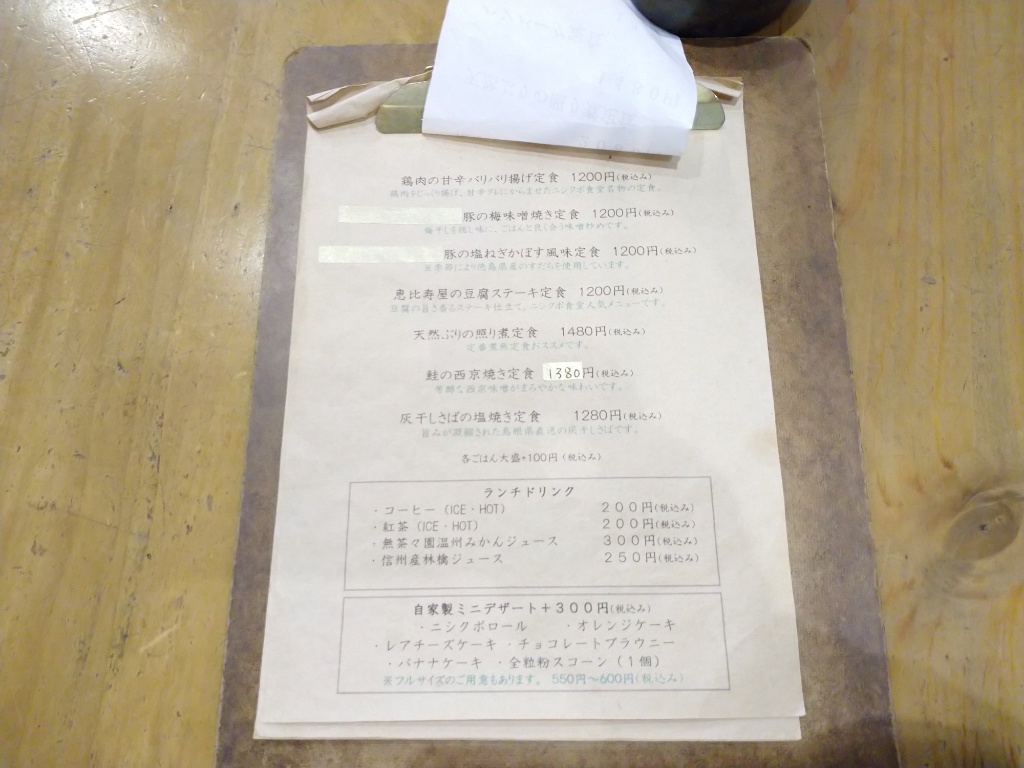 鶏肉の甘辛バリバリ揚げ定食 1200円(税込み)
鶏肉をじっくり揚げ、甘辛ダレにからませたニシクボ食堂名物の定食。
豚の梅味噌焼き定食 1200円(税込み)
梅干しを隠し味に、ごはんと良く合う味噌炒めです。
豚の塩ねぎかぼす風味定食 1200円(税込み)
※季節により徳島県産のすだちを使用しています。
恵比寿屋の豆腐ステーキ定食 1200円(税込み)
豆腐の旨さ香るステーキ仕立て、ニシクボ食堂人気メニューです。
天然ぶりの照り煮定食 1480円(税込み)
定番煮魚定食おススメです。
鮭の西京焼き定食 1380円(税込み)
芳醇な西京味噌がまろやかな味わいです。
灰干しさばの塩焼き定食 1280円(税込み)
旨みが凝縮された島根県直送の灰干しさばです。
各ごはん大盛+100円(税込み)
ランチドリンク
・コーヒー(ICE・HOT) 200円(税込み)
・紅茶(ICE・HOT) 200円(税込み)
・無茶々園温州みかんジュース 300円(税込み)
・信州産林檎ジュース 250円(税込み)
自家製ミニデザート+300円(税込み)
・ニシクボロール ・オレンジケーキ
・レアチーズケーキ ・チョコレートブラウニー
・バナナケーキ ・全粒粉スコーン(1個)
※フルサイズのご用意もあります。 550円～600円(税込み)